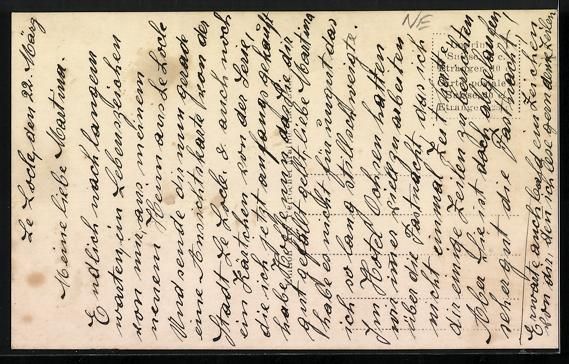 Le Locle den 22. März
Meine liebe Martina.
Endlich nach langem
warten, ein Lebenszeichen
von mir, aus meinem
neuem Heim aus de Locle
Und sende dir nun grade
eine Ansichtskarte von der
Stadt Le Locle & auch noch
ein Kärtchen von der Serie,
die ich jetzt anfangs gekauft
habe. Hoffe, dass sie dir
gut gefällt, gelt liebe Martina
habe es nicht für ungut das
ich so lang stillschweigte.
Im Hotel Ochsen hatten
wir immer viel zu arbeiten
über die Fastnacht, das ich
nicht einmal Zeit fand
dir einige Zeilen zu senden
Aber Sie ist doch gegangen
sehr gut die Fastnacht!
Erwarte auch bald ein Zeichen
von dir, den
NE